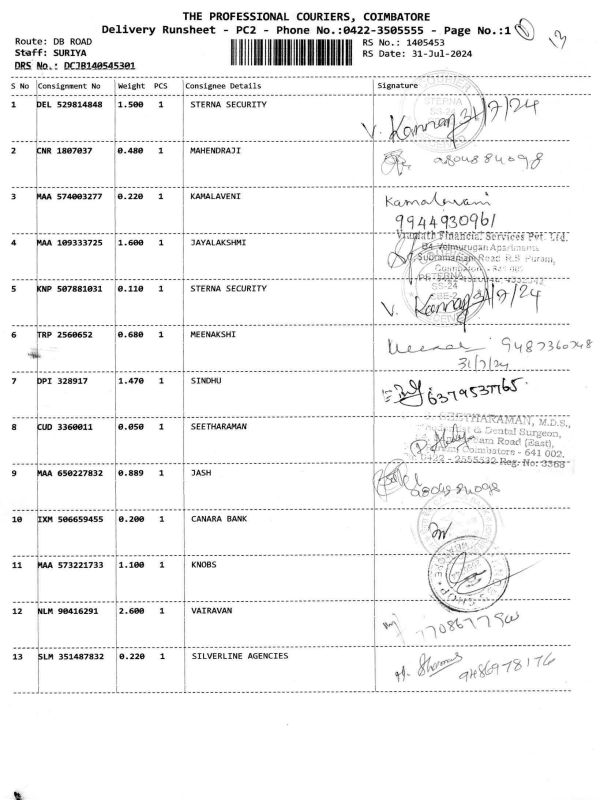 THE PROFESSIONAL COURIERS, COIMBATORE
Delivery Runsheet - PC2 - Phone No.:0422-3505555 - Page No.:1
13
Route: DB ROAD
RS No.: 1405453
Staff: SURIYA
RS Date: 31-Jul-2024
DRS No.: DCJB140545301
S No Consignment No Weight PCS Consignee Details Signature
1 DEL 529814848 1.500 1 STERNA SECURITY V. Kannan 31/7/24
2 CNR 1807037 0.480 1 MAHENDRAJI
3 MAA 574003277 0.220 1 KAMALAVENI Kamalaveni
9944930961
Financial Services Pvt. Ltd.
4 MAA 109333725 1.600 1 JAYALAKSHMI
Velmurugan Apartments
Subramaniam Road R.S. Puram,
5 KNP 507881031 0.110 1 STERNA SECURITY V. Kannan 31/7/24
6 TRP 2560652 0.680 1 MEENAKSHI
31/7/24
7 DPI 328917 1.470 1 SINDHU 6379537765
8 CUD 3360011 0.050 1 SEETHARAMAN
SEETHARAMAN, M.D.S.,
& Dental Surgeon,
Road (East),
Coimbatore - 641 002.
0422 - 2555532 Reg. No: 3368
9 MAA 650227832 0.889 1 JASH
10 IXM 506659455 0.200 1 CANARA BANK
11 MAA 573221733 1.100 1 KNOBS
12 NLM 90416291 2.600 1 VAIRAVAN
13 SLM 351487832 0.220 1 SILVERLINE AGENCIES 9486978176